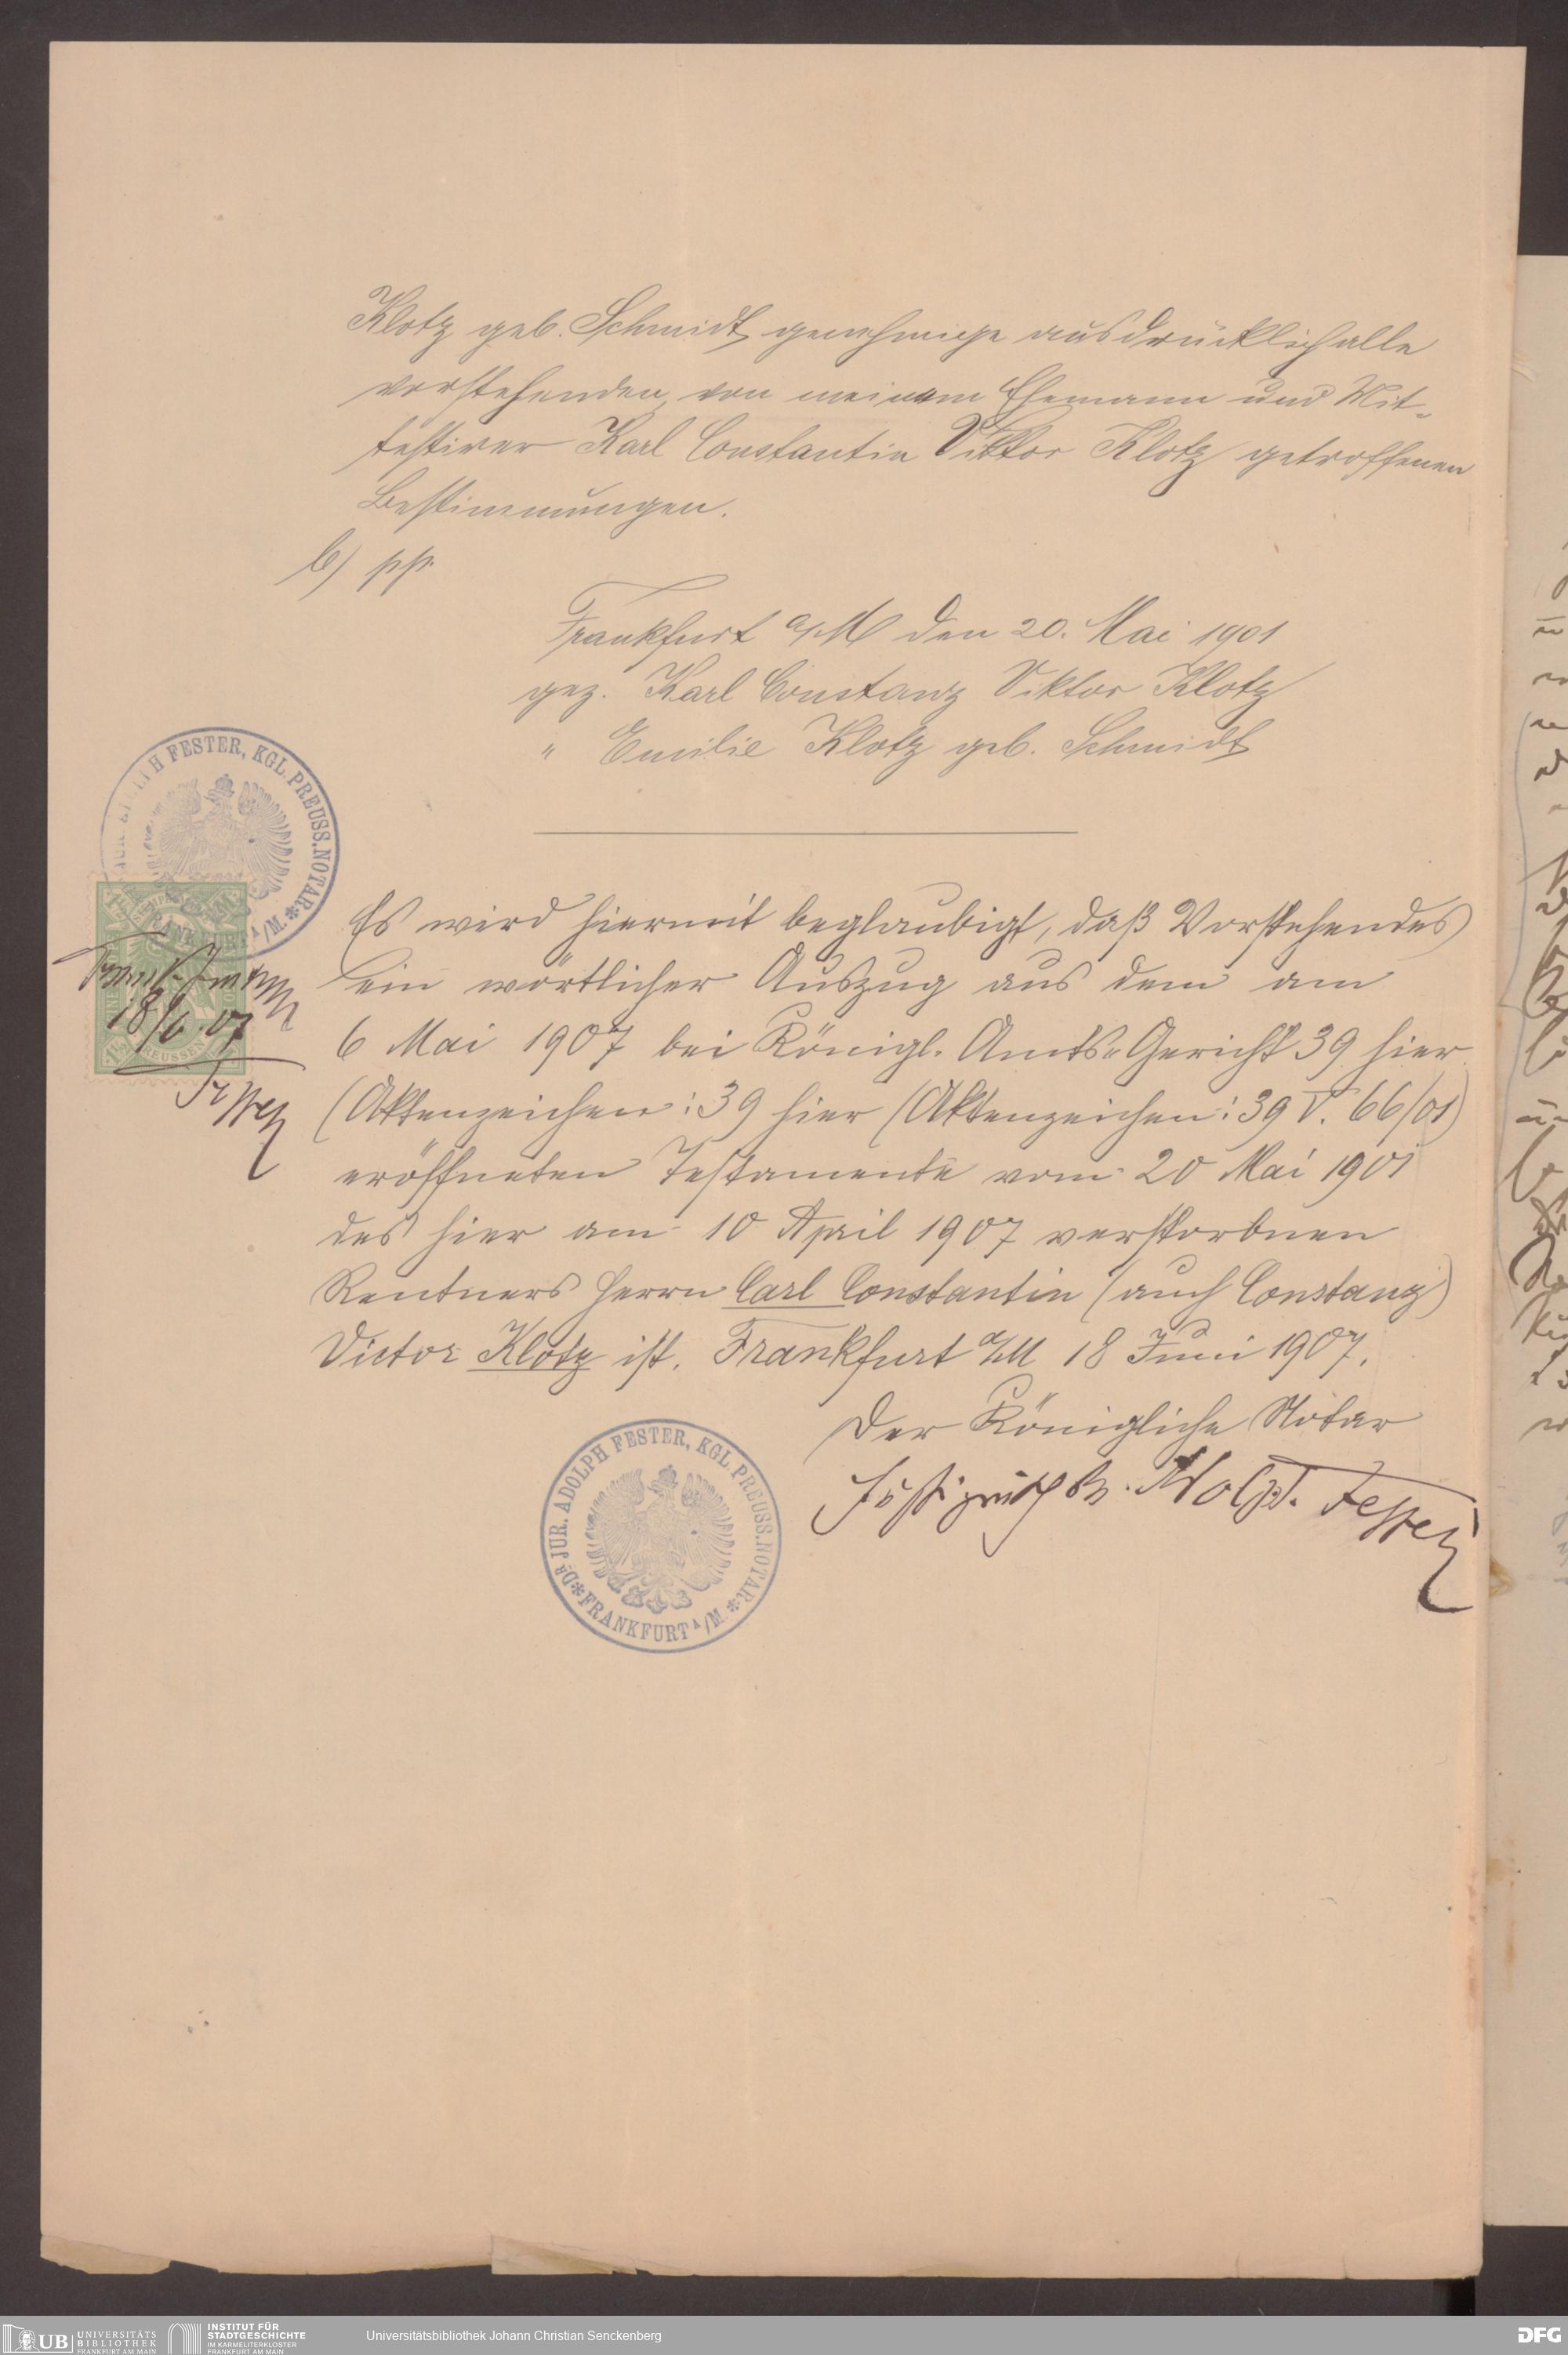 Klotz geb. Schmidt genehmige ausdrücklich alle
vorstehenden von meinem Ehemann und Mit-
testirer Karl Constantin Viktor Klotz getroffenen
Bestimmungen.
b) pp.
Frankfurt a/M den 20. Mai 1901
gez. Karl Constanz Viktor Klotz
" Emilie Klotz geb. Schmidt
H FESTER, KGL. PREUSS. NOTAR * FRANKFURT A/M.
18/6.07
Fester
Es wird hiermit beglaubigt, daß Vorstehendes
ein wörtlicher Auszug aus dem am
6 Mai 1907 bei Königl. Amts-Gericht 39 hier
(Aktenzeichen: 39 hier (Aktenzeichen: 39 V. 66/01)
eröffneten Testamente vom 20 Mai 1901
des hier am 10 April 1907 verstorbnen
Rentners Herrn Carl Constantin (auch Constanz)
Victor Klotz ist. Frankfurt a/M 18 Juni 1907.
Der Königliche Notar
Justizrath Dr. Adolph Fester
DR JUR. ADOLPH FESTER, KGL. PREUSS. NOTAR * FRANKFURT A/M. *
UB UNIVERSITÄTS BIBLIOTHEK FRANKFURT AM MAIN
INSTITUT FÜR STADTGESCHICHTE IM KARMELITERKLOSTER FRANKFURT AM MAIN
Universitätsbibliothek Johann Christian Senckenberg
DFG